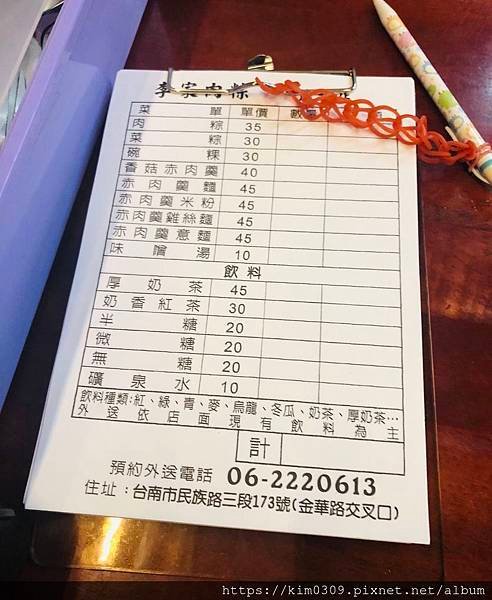 李家肉粽
菜單 單價 數量
肉粽 35
菜粽 30
碗粿 30
香菇赤肉羹 40
赤肉羹麵 45
赤肉羹米粉 45
赤肉羹雞絲麵 45
赤肉羹意麵 45
味噌湯 10
飲料
厚奶茶 45
奶香紅茶 30
半糖 20
微糖 20
無糖 20
礦泉水 10
飲料種類:紅、綠、青、麥、烏龍、冬瓜、奶茶、厚奶茶…
外送依店面現有飲料為主
計
預約外送電話 06-2220613
住址:台南市民族路三段173號(金華路交叉口)
https://kim0309.pixnet.net/album